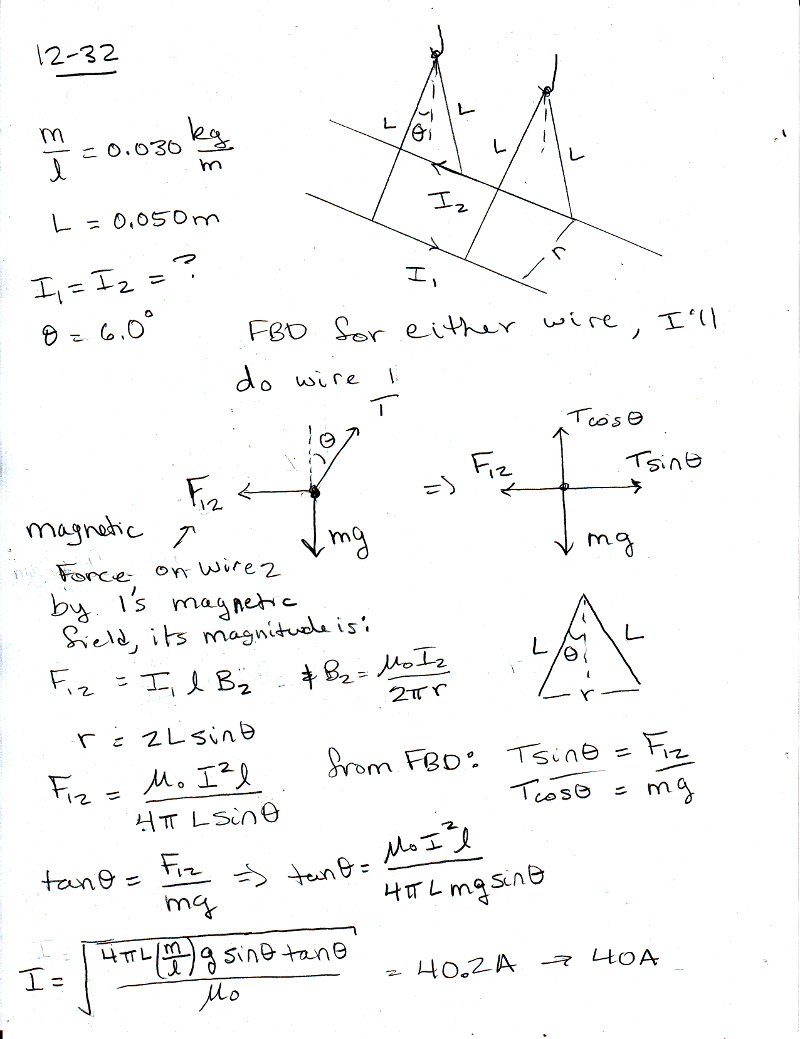 12-32
m/l = 0.030 kg/m
L = 0.050m
I₁ = I₂ = ?
θ = 6.0°
L θ L
L L
I₂
I₁
r
FBD for either wire, I'll
do wire 1
θ T
F₁₂
mg
=>
Tcosθ
F₁₂ Tsinθ
mg
magnetic
Force on wire 2
by 1's magnetic
field, its magnitude is:
L θ L
r
F₁₂ = I₁ l B₂ & B₂ = μ₀I₂/2πr
r = 2L sinθ
F₁₂ = μ₀ I²l / 4π L sinθ
from FBD: Tsinθ/Tcosθ = F₁₂/mg
tanθ = F₁₂/mg => tanθ = μ₀I²l / 4π L mg sinθ
I = √(4πL(m/l) g sinθ tanθ / μ₀) = 40.2A → 40A